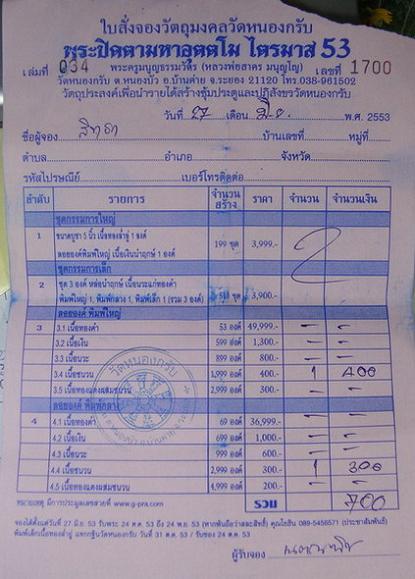 ใบสั่งจองวัตถุมงคลวัดหนองกรับ
พระปิดตามหาอุตตโม ไตรมาส 53
เล่มที่ 034 พระครูมนูญธรรมวัตร (หลวงพ่อสาคร มนุญโญ) เลขที่ 1700
วัดหนองกรับ ต.หนองบัว อ.บ้านค่าย จ.ระยอง 21120 โทร.038-961502
วัตถุประสงค์เพื่อนำรายได้สร้างซุ้มประตูและปฏิสังขรวัดหนองกรับ
วันที่ 27 เดือน มิ.ย. พ.ศ. 2553
ชื่อผู้จอง บ้านเลขที่ หมู่ที่
ตำบล อำเภอ จังหวัด
รหัสไปรษณีย์ เบอร์โทรติดต่อ
ลำดับ รายการ จำนวนสร้าง ราคา จำนวน จำนวนเงิน
ชุดกรรมการใหญ่
1 ขนาดบูชา 5 นิ้ว เนื้อทองลำอู่ 1 องค์ 199 ชุด 3,999.-
ลอยองค์พิมพ์ใหญ่ เนื้อเงินนำฤกษ์ 1 องค์
ชุดกรรมการเล็ก
2 ชุด 3 องค์ หล่อนำฤกษ์ เนื้อนวะแก่ทองคำ ชุด 3,900.-
พิมพ์ใหญ่ 1, พิมพ์กลาง 1, พิมพ์เล็ก 1 (รวม 3 องค์)
ลอยองค์ พิมพ์ใหญ่
3 3.1 เนื้อทองคำ 53 องค์ 49,999.- - -
3.2 เนื้อเงิน 599 องค์ 1,300.- - -
3.3 เนื้อนวะ 899 องค์ 800.- - -
3.4 เนื้อชนวน 1,999 องค์ 400.- 1 400
3.5 เนื้อทองแดงผสมชนวน 2,999 องค์ 300.- - -
ลอยองค์ พิมพ์กลาง
4 4.1 เนื้อทองคำ 69 องค์ 36,999.- - -
4.2 เนื้อเงิน 699 องค์ 1,000.- - -
4.3 เนื้อนวะ 999 องค์ 600.- - -
4.4 เนื้อชนวน 2,999 องค์ 300.- 1 300
4.5 เนื้อทองแดงผสมชนวน 4,999 องค์ 200.- - -
หมายเหตุ มีการประมูลเลขสวยที่ www.g-pra.com รวม 700
จองได้ตั้งแต่วันที่ 27 มิ.ย. 53 รับพระ 24 ต.ค. 53 ถึง 24 พ.ย. 53 (หากพ้นถือว่าสละสิทธิ์) คุณโยธิน 089-5456571 (ประชาสัมพันธ์)
พิมพ์เล็กเนื้อทองลำอู่ แจกกฐินวัดหนองกรับ วันที่ 31 ต.ค. 53 / รับของ 24 ต.ค. 53
ผู้รับจอง